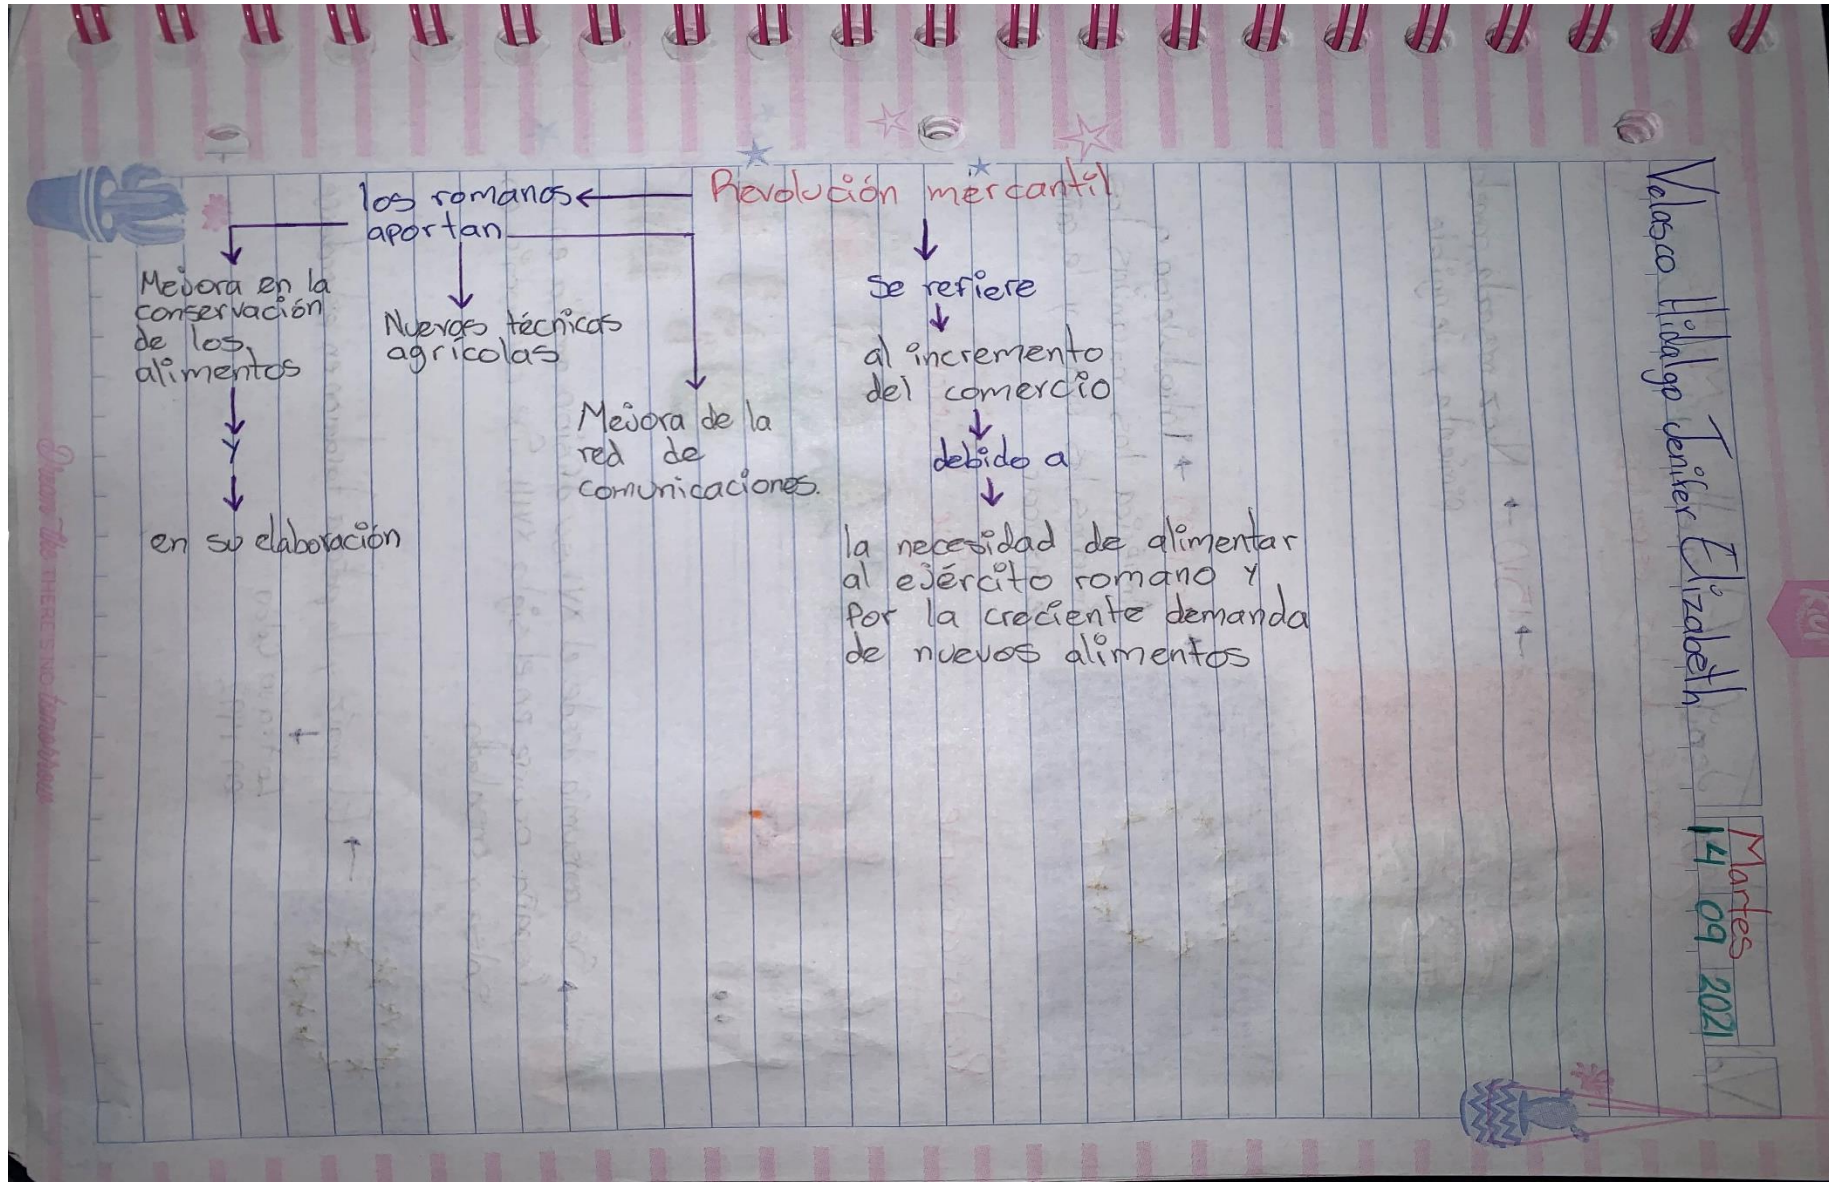 Revolución mercantil
los romanos
aportan
Mejora en la
conservación
de los
alimentos
y
en su elaboración
Nuevas técnicas
agrícolas
Mejora de la
red de
comunicaciones.
Se refiere
al incremento
del comercio
debido a
la necesidad de alimentar
al ejército romano y
por la creciente demanda
de nuevos alimentos
Velasco Hidalgo Jenifer Elizabeth
Martes
14 09 2021
Dream like THERE'S NO tomorrow